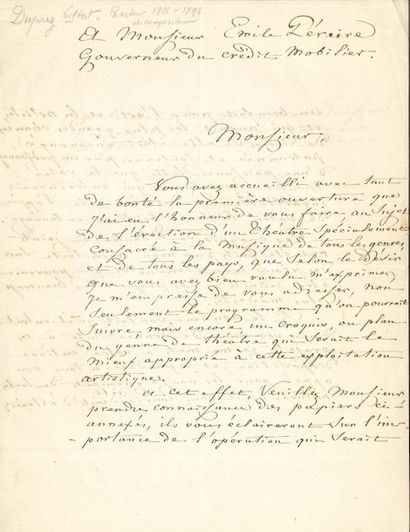 Duprez Gilbert Chanteur 1806-1896
et compositeur
A Monsieur Emile Péreire
Gouverneur du crédit Mobilier.
Monsieur,
Vous avez accueilli avec tant
de bonté la première ouverture que
j'ai eu l'honneur de vous faire, au sujet
de l'érection d'un théatre spécialement
consacré à la Musique de tous les genres,
et de tous les pays, que selon le désir
que vous avez bien voulu m'exprimer
je m'empresse de vous adresser, non
seulement le programme qu'on pourrait
suivre, mais encore un croquis, ou plan
du genre de théatre qui serait le
mieux approprié à cette exploitation
artistique.
A cet effet, veuillez Monsieur
prendre connaissance des papiers ci-
annexés, ils vous éclaireront sur l'im-
portance de l'opération qui serait